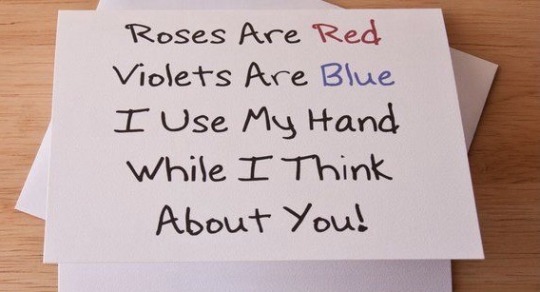 Roses Are Red
Violets Are Blue
I Use My Hand
While I Think
About You!